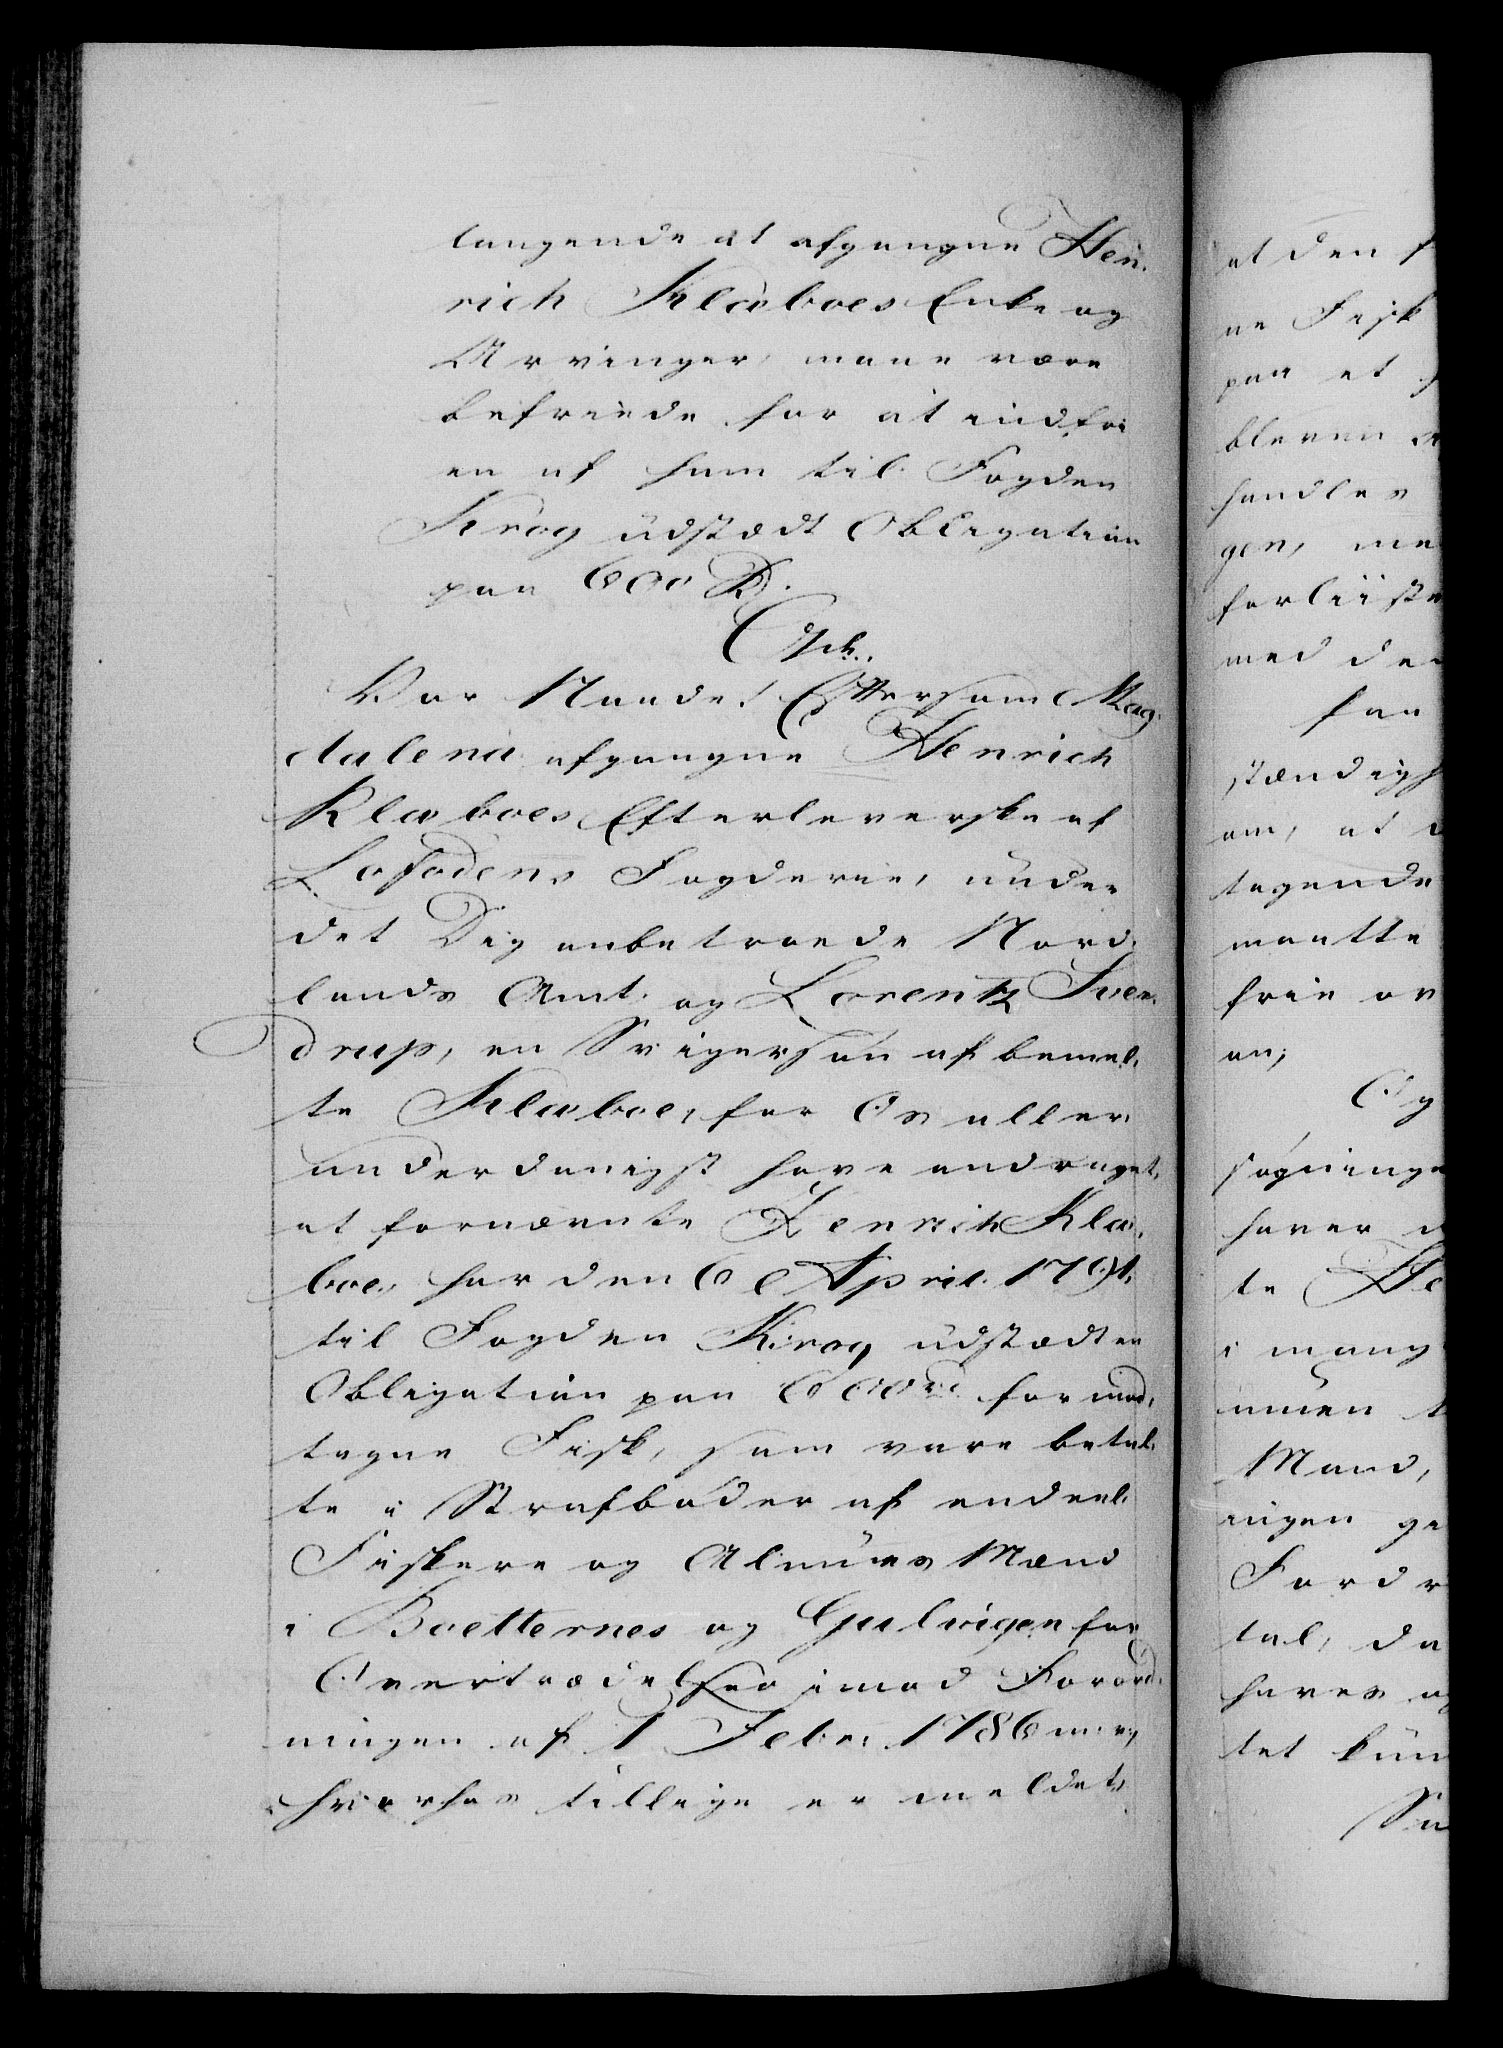 langende at afgangne Hen-
rich Klæboes Enke og
Arvinger, maae være
befriede for at indfri
en af ham til Fogden
Krog udstædt Obligation
paa 600 Rd.
Vor Naade! Eftersom Mag-
dalena afgangne Henrich
Klæboes Efterleverske af
Lofodens Fogderie, under
det Dig anbetroede Nord-
lands Amt og Lorentz Sver-
drup, en Svigersøn af bemel-
te Klæboe, for Os aller-
underdanigst have andraget,
at fornævnte Henrich Klæ-
boe, har den 6 April 1791.
til Fogden Krog udstædt en
Obligation paa 600 rd. for mod-
tagne Fisk, som vare betal-
te i Strafbøder af endeel
Fiskere og Almues Mænd
i Boetternes og Gulvigen for
Overtrædelser imod Forord-
ningen af 1 Febr. 1786 m. v.,
hvorhos tillige er meldet,
at den f
ne Fisk
paa et
bleven
handles
gen, me
forliiste
med de
faa
stændigh
om, at
tagende
maatte
frie ov
en;
Og
søgninge
haver
te He
i mang
umuen
Mand,
ingen ge
Fordr
tal, da
haves
tet kun
Saa